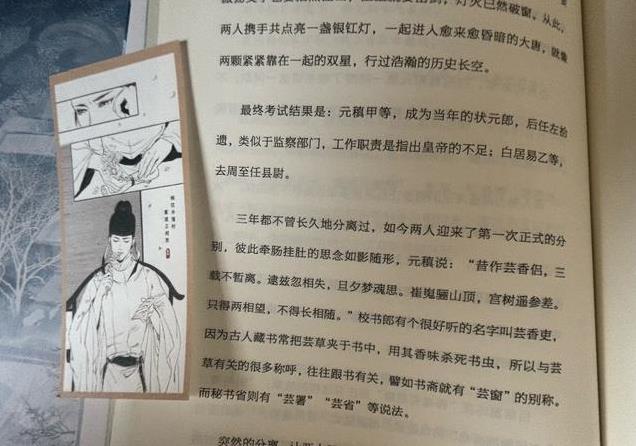 两人携手共点亮一盏银釭灯，一起进入愈来愈昏暗的大唐，就像
两颗紧紧靠在一起的双星，行过浩瀚的历史长空。
最终考试结果是：元稹甲等，成为当年的状元郎，后任左拾
遗，类似于监察部门，工作职责是指出皇帝的不足；白居易乙等，
去周至任县尉。
三年都不曾长久地分离过，如今两人迎来了第一次正式的分
别，彼此牵肠挂肚的思念如影随形，元稹说：“昔作芸香侣，三
载不暂离。逮兹忽相失，旦夕梦魂思。崔嵬骊山顶，宫树遥参差。
只得两相望，不得长相随。”校书郎有个很好听的名字叫芸香吏，
因为古人藏书常把芸草夹于书中，用其香味杀死书虫，所以与芸
草有关的很多称呼，往往跟书有关，譬如书斋就有“芸窗”的别称。
而秘书省则有“芸署”“芸省”等说法。
突然的分离，让